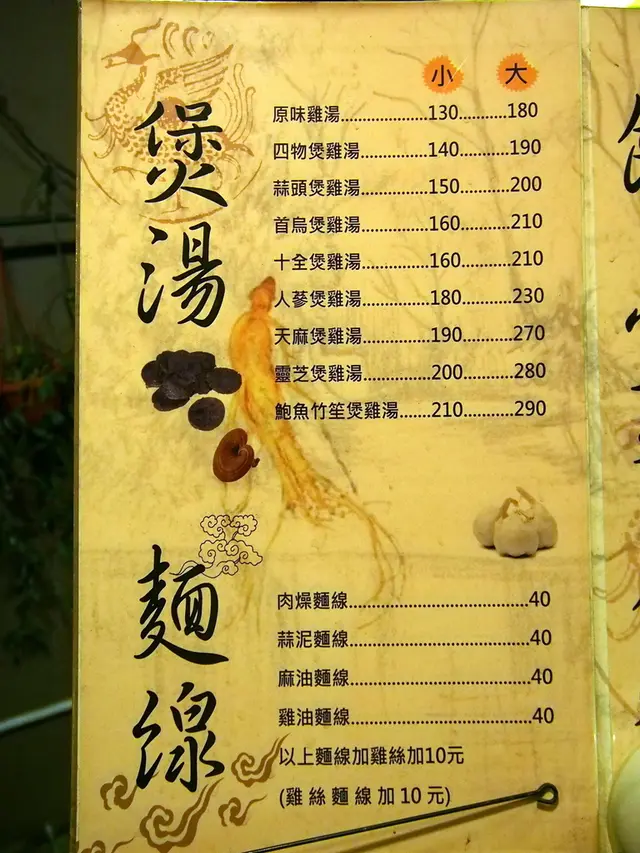 煲湯
小 大
原味雞湯....................130...........180
四物煲雞湯................140...........190
蒜頭煲雞湯................150...........200
首烏煲雞湯................160...........210
十全煲雞湯................160...........210
人蔘煲雞湯................180...........230
天麻煲雞湯................190...........270
靈芝煲雞湯................200...........280
鮑魚竹笙煲雞湯.......210...........290
麵線
肉燥麵線..........................................40
蒜泥麵線..........................................40
麻油麵線..........................................40
雞油麵線..........................................40
以上麵線加雞絲加10元
(雞絲麵線加10元)